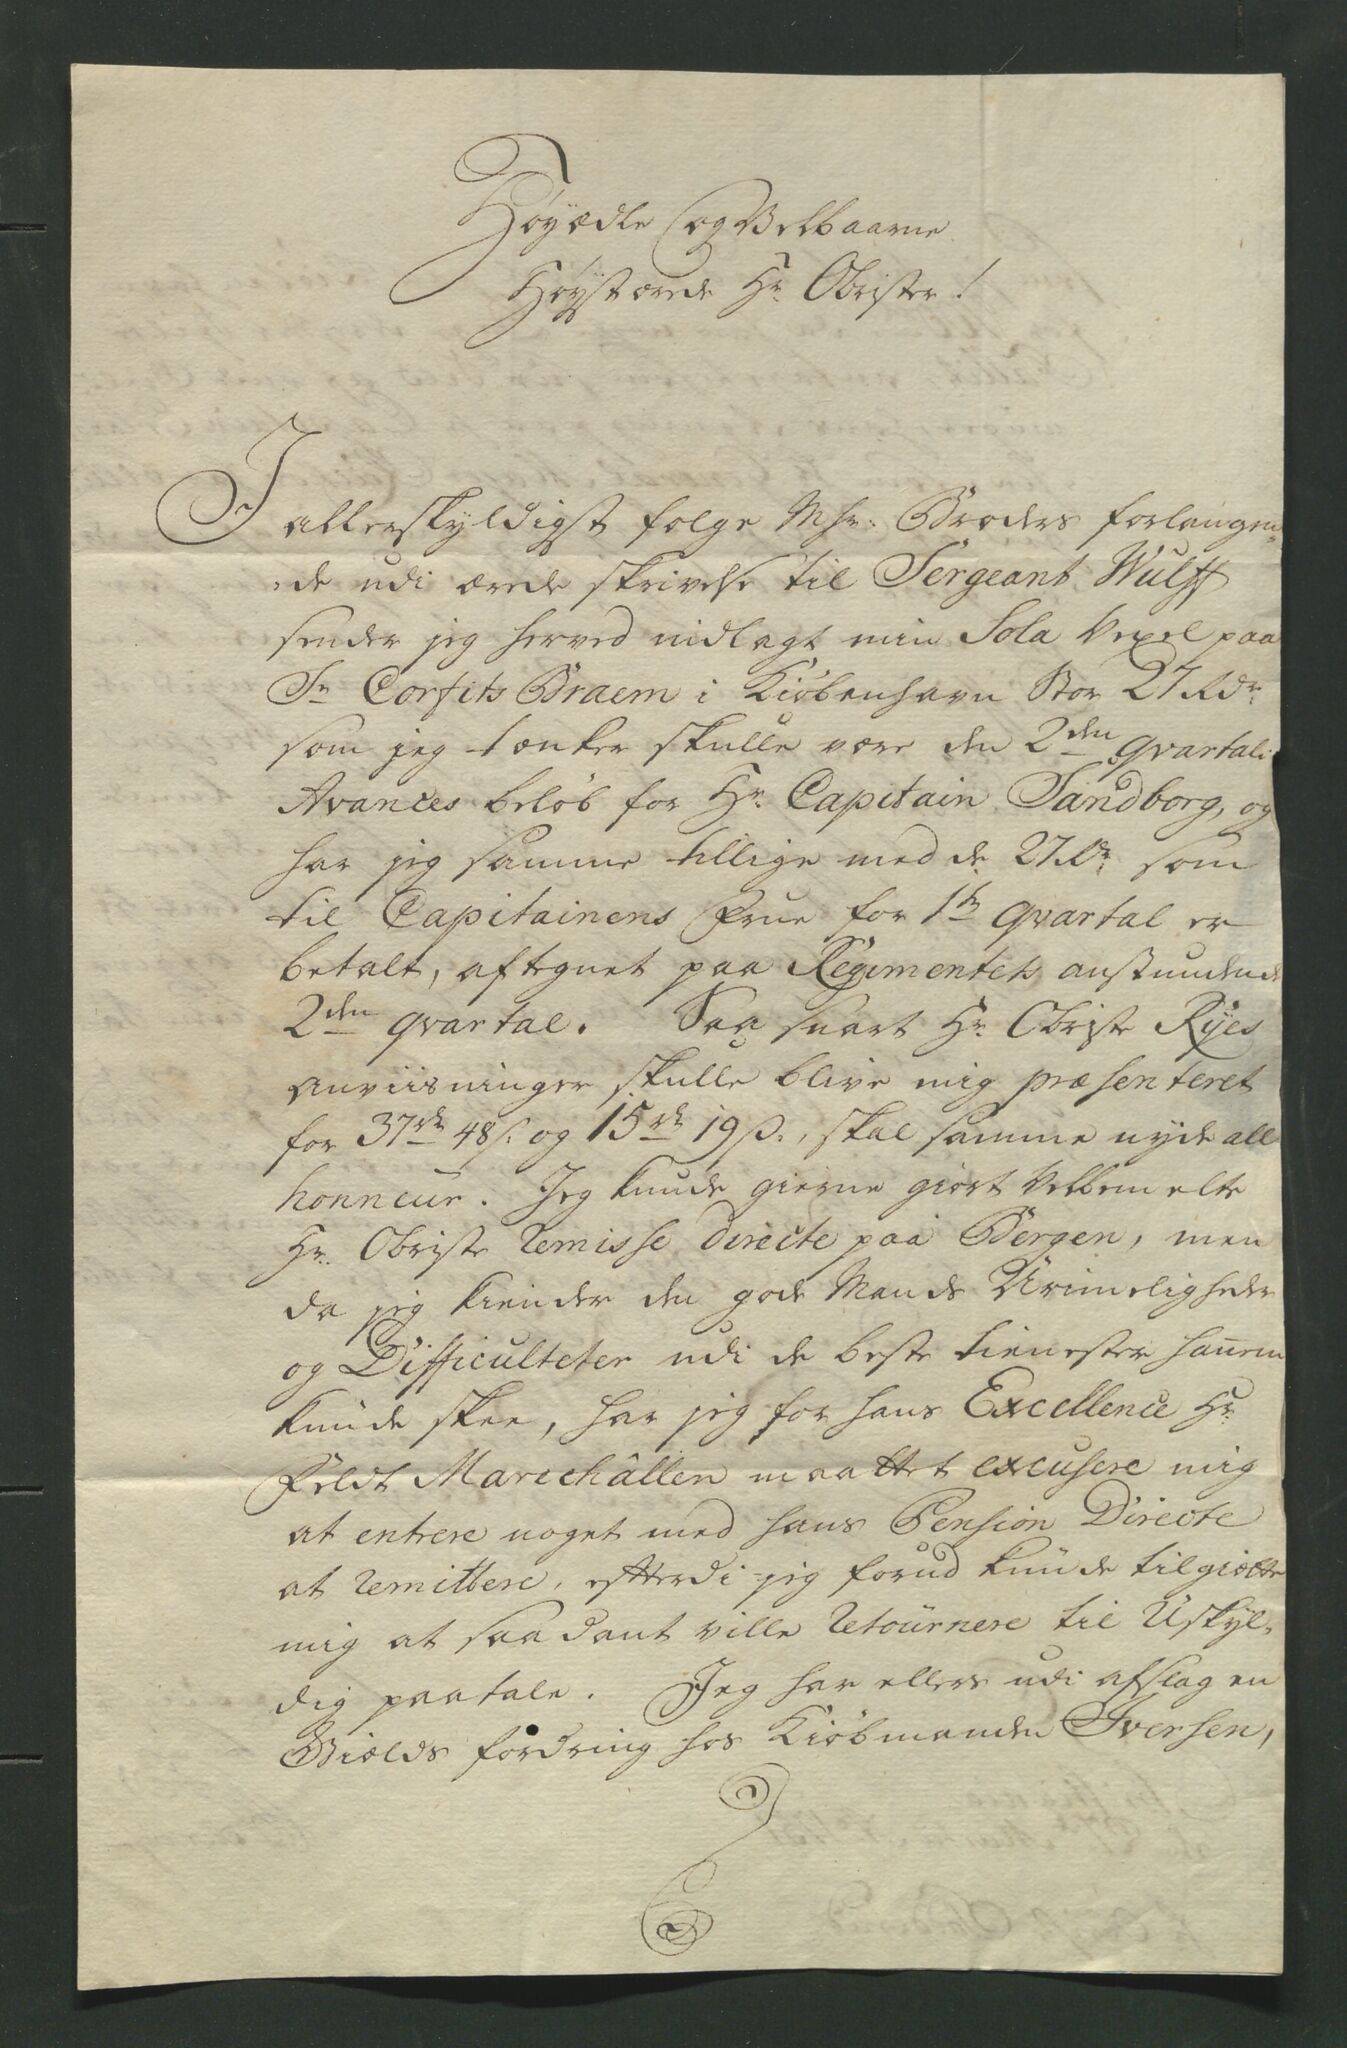 Høyædle og Velbaarne
Høystærede Hr. Obrister!
I
allerskyldigst følge Mhr: Broders forlangen¬
¬de udi ærede skrivelse til Sergeant Wulff
sender jeg herved indlagt min Sola Vexel paa
Sr Corfits Braem i Kiøbenhavn Stor 27 Rdr.
som jeg tænker skulle være den 2den qvartals
Avances beløb for Hr. Capitain Sandborg, og
har jeg samme tillige med de 27 Rdr som
til Capitainens Frue for 1ste qvartal er
betalt, aftegnet paa Regimentets anstundende
2den qvartal. Saa snart Hr. Obriste Ryes
anviisninger skulle blive mig præsenteret
for 37 rdr 48 s. og 15 rdr 19 s., skal samme nyde all
honneur. Jeg kunde gierne giørt Velbemelte
Hr. Obriste remisse directe paa Bergen, men
da jeg kiender den gode Mands Urimeligheder
og Difficulteter udi de beste tienester hannem
kunde skee, har jeg for hans Excellence Hr.
Feldt Marechallen maattet excusere mig
at entrere noget med hans Pension Directe
at remittere, efterdi jeg forud kunde tilgiætte
mig at saadant ville retournere til Uskyl¬
dig paatale. Jeg har ellers udi afslag en
Bields fordring hos Kiøbmanden Iversen,